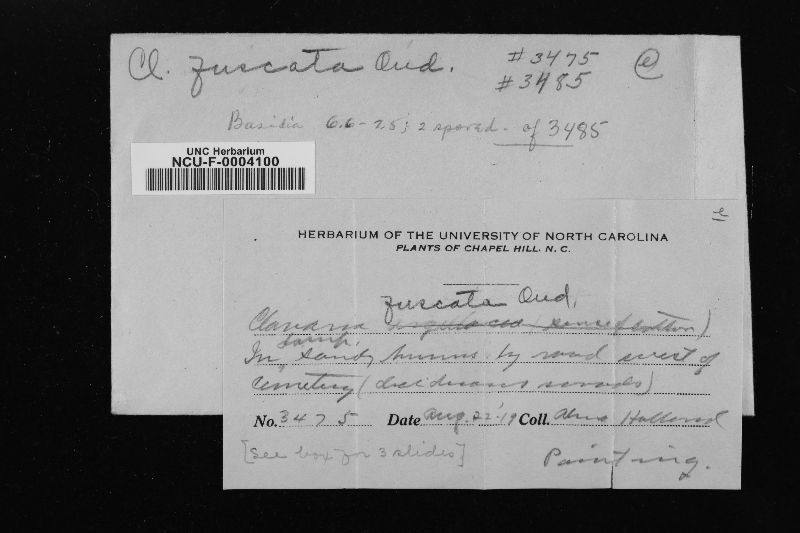 Cl. fuscata Oud. #3475 e
#3485
Basidia 6.6-7.5; 2 spored. of 3485
UNC Herbarium
NCU-F-0004100
e
HERBARIUM OF THE UNIVERSITY OF NORTH CAROLINA
PLANTS OF CHAPEL HILL. N. C.
fuscata Oud.
Clavaria
damp,
In sandy humus by road west of
cemetery (deciduous woods)
No. 3475 Date Aug. 22 '19 Coll. Alma Holland
[See box for 3 slides] Painting.